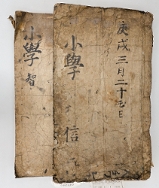 庚戌三月二十七日
小學
信
小學
智